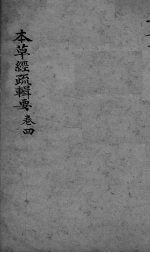 本草經疏輯要卷四